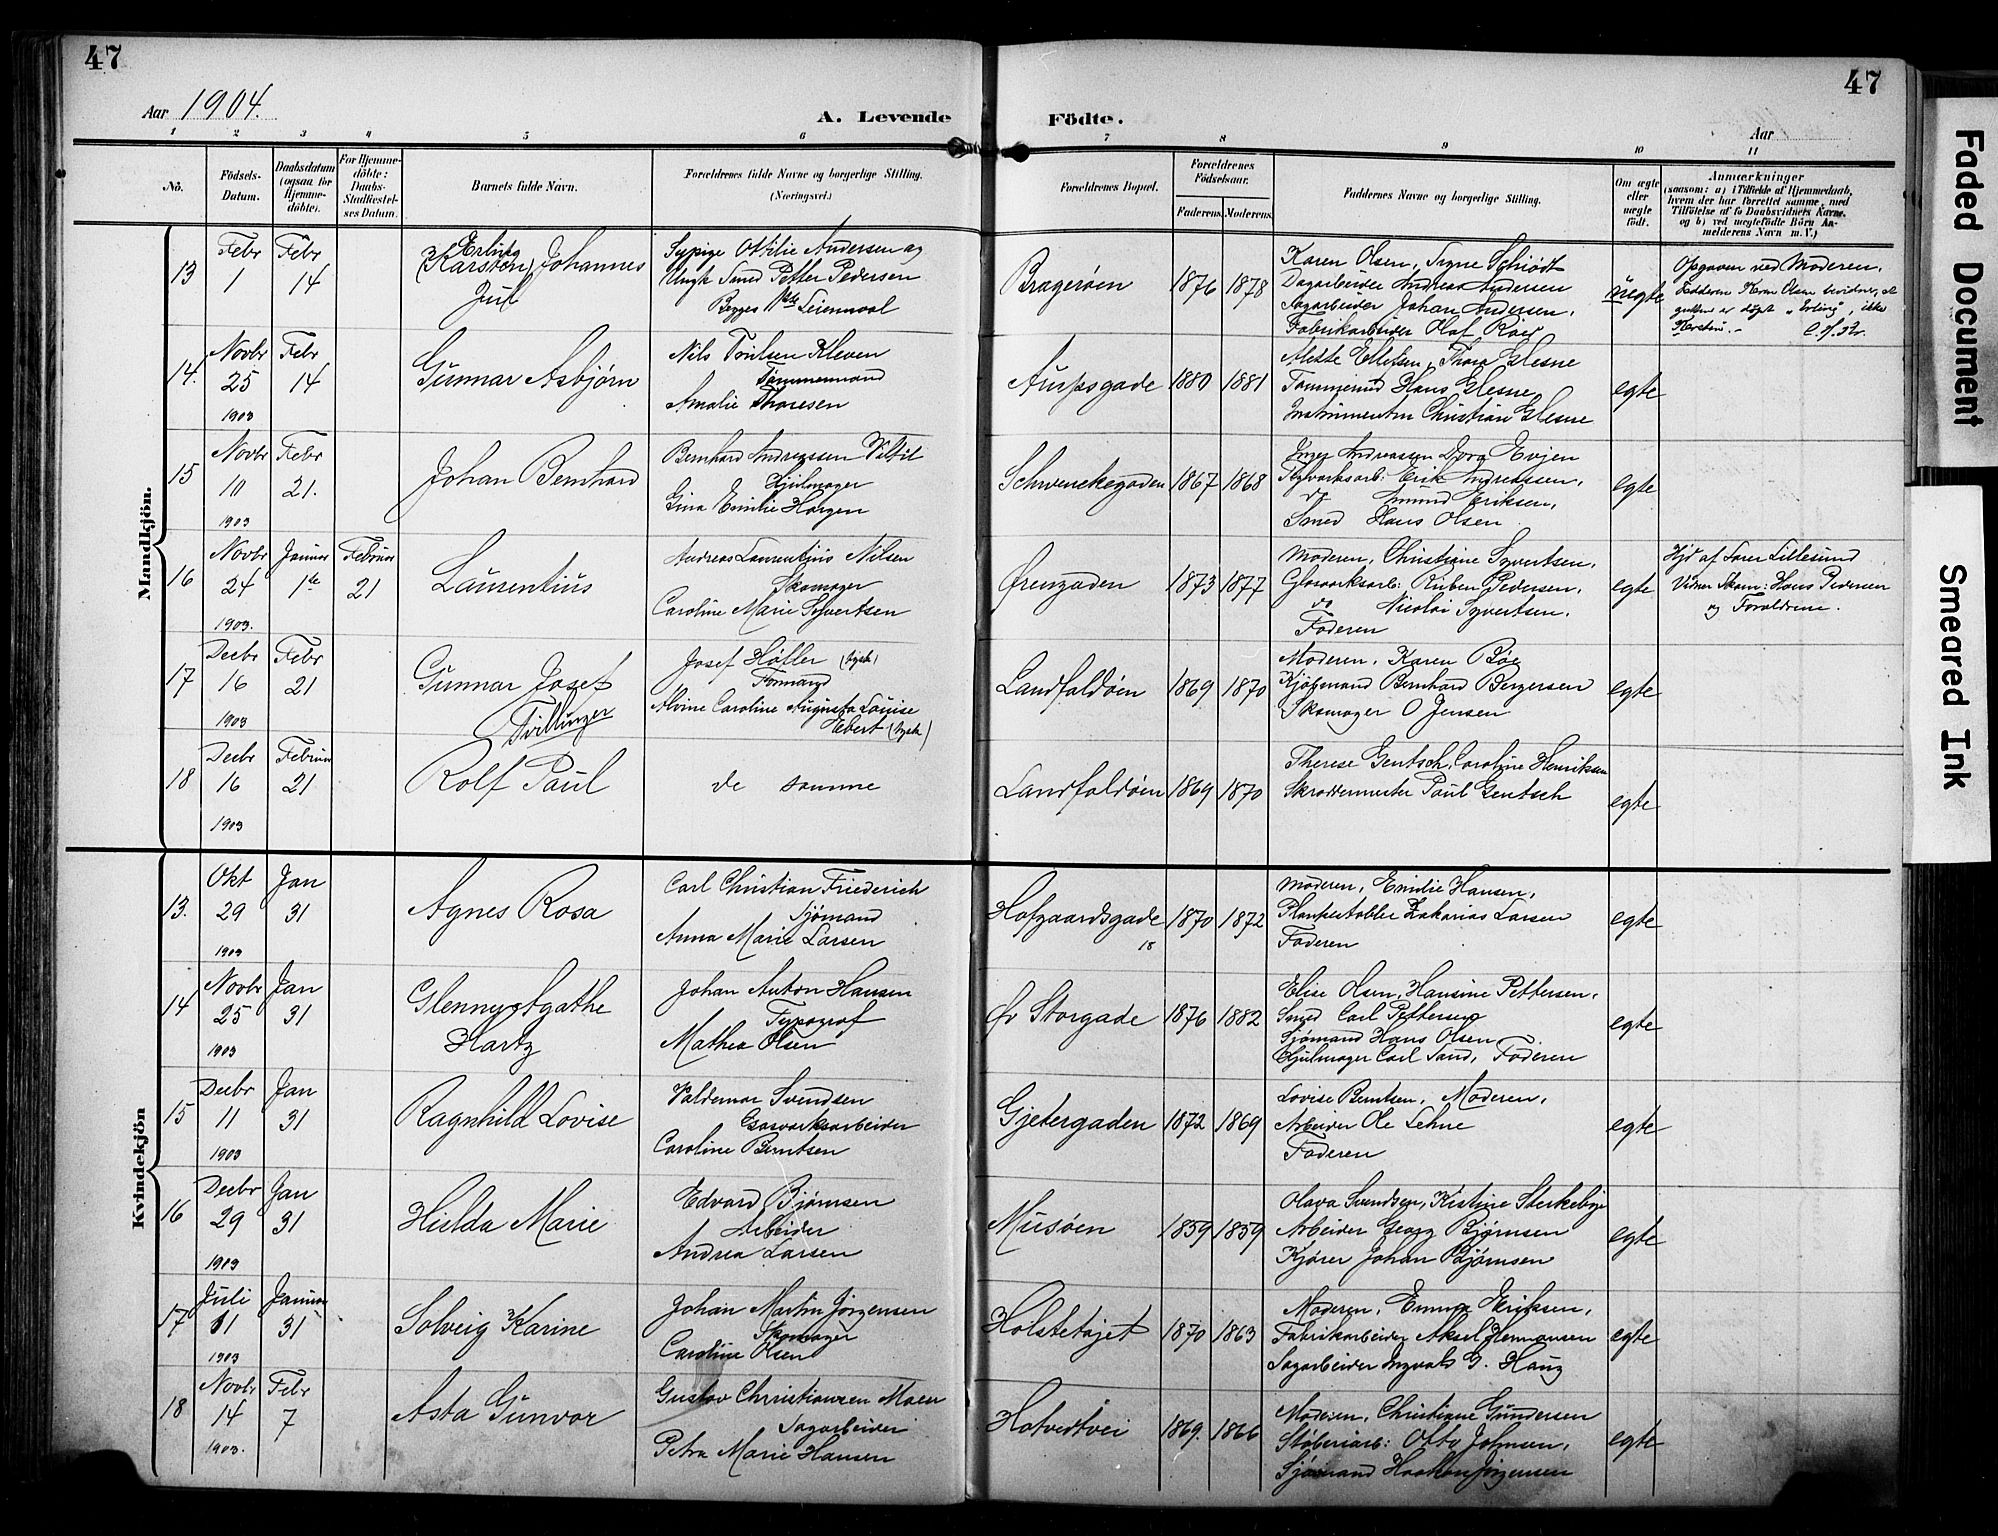 47
47
Aar 1904.
A. Levende Födte.
Aar
1 2 3 4 5 6 7 8 9 10 11
No.
Födsels-Datum.
Daabsdatum (ogsaa for Hjemmedöbte).
For Hjemmedöbte: Daabs-Stadfæstelses Datum.
Barnets fulde Navn.
Forældrenes fulde Navne og borgerlige Stilling. (Næringsvei.)
Forældrenes Bopæl.
Forældrenes Födselsaar.
Faderens. Moderens.
Faddernes Navne og borgerlige Stilling.
Om ægte eller uægte födt.
Anmærkninger
(saasom: a) i Tilfælde af Hjemmedaab,
hvem der har forrettet samme, med
Tilföielse af to Daabsvidners Navne,
og b) ved uægtefödte Börn Anmelderens Navn m. V.)
Mandkjön.
13
Febr 1
Febr 14
Erling
(Karsten) Johannes
Jul
Sypige Otilie Andersen og
Ungk Petter Pedersen
Begges
Bragerøen
1876 1878
Karen Olsen, Signe Schiødt
Dagarbeider Andreas Andersen
Sagarbeider Johan Andersen,
Fabrikarbeider Olaf
uegte
Opgaven ved Moderen.
Fadderen Karen Olsen bevidner, at
gutten er døpt "Erling", ikke
Karsten. -
14.
Novbr 25 1903
Febr 14
Gunnar Asbjørn
Nils Kleven
Tømmermand
Amalie Thoresen
1880 1881
Mette Ellefsen, Thora Hesne
Tømmermd Hans Hesne,
Instrumentm Christian Hesne
egte
15
Novbr 10 1903
Febr 21.
Johan Bernhard
Bernhard Andreassen
Hjulmager
Gina Emilie Horgen
Schwenckegaden
1867 1868
Inger Andreassen Dora Evjen
Erik Andreassen,
do Amund Eriksen,
Smed Hans Olsen
egte
16
Novbr 24 1903.
Januar 1ste
Februar 21
Laurentius
Andreas Laurentius Nilsen
Skomager
Caroline Marie Syvertsen
Ørengaden
1873 1877
Moderen, Christiane Syvertsen,
Glasværksarb: Ruben Pedersen,
do Nicolai Syvertsen.
Faderen
egte
Hjd af Lillesund
Vidner Skom: Hans Pedersen
og Forældrene.
17
Decbr 16 1903
Febr 21
Gunnar Josef
Tvillinger
Josef Høller (tysk)
Formand
Alvine Caroline Augusta Louise
Ebert (tysk)
Landfaldøen
1869 1870
Moderen, Karen Bøe
Kjøbmand Bernhard Bergersen
Skomager O Jensen
egte
18
Decbr 16 1903
Februar 21
Rolf Paul
de samme
Landfaldøen
1869 1870
Therese Gentsch, Caroline Henriksen
Skræddermester Paul Gentsch
egte
Kvindekjön
13.
Okt 29 1903
Jan 31
Agnes Rosa
Carl Christian Friederich
Sjømand
Anna Marie Larsen
Hofgaardsgade
18
1870 1872
Moderen, Emilie Hansen,
Plankestabler Zakarias Larsen
Faderen
egte
14
Novbr 25 1903
Jan 31
Glenny Agathe
Hartz
Johan Anton Hansen
Typograf
Mathea Olsen
Øv Storgade
1876 1882
Elise Olsen, Hansine Pettersen.
Smed Carl Pettersen
Sjømand Hans Olsen
Hjulmager Carl Sand, Faderen
egte
15
Decbr 11 1903
Jan 31
Ragnhild Lovise
Valdemar Svendsen
Gasværksarbeider
Caroline Berntsen
Gjetergaden
1872 1869
Lovise Berntsen, Moderen,
Arbeider Ole Lehne
Faderen
egte
16
Decbr 29 1903
Jan 31
Hilda Marie
Edvard Bjørnsen
Arbeider
Andrea Larsen
Musøen
1859 1859
Olava Svendsen, Kristine Sterkebye
Arbeider Georg Bjørnsen
Kjører Johan Bjørnsen
egte
17
Juli 1903
Januar 31
Solveig Karine
Johan Martin Jørgensen
Skomager
Caroline Olsen
Holstetøjet
1870 1863
Moderen, Emma Eriksen,
Fabrikarbeider Aksel Hermansen
Sagarbeider Ingvald G. Haug
egte
18
Novbr 14 1903.
Febr 7
Asta Gunvor
Gustav Christiansen Moen
Sagarbeider
Petra Marie Hansen
Hotvedtvei
1869. 1866
Moderen, Christiane Gundersen
Støberiarb: Otto Johnsen,
Sjømand Haakon Jørgensen
egte
Faded Document
Smeared Ink